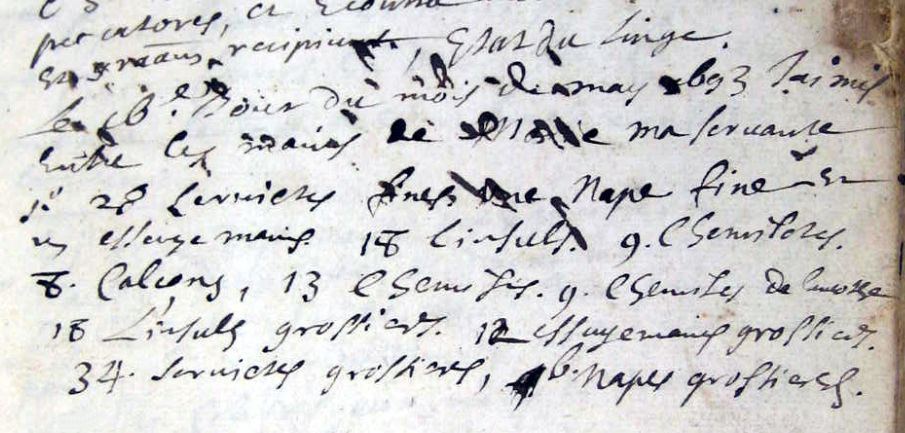 peccatores, et
recipiunt, Estat du Linge.
Le Jour du mois de may 1693 Jai mis
Entre les mains de Marie ma servante
28 serviettes fines une Nape fine
essuye mains 18 linsuls 9. Chemisetes.
8. Calcons, 13 Chemises. 9. Chemises de
18 Linsuls grossiers. 12 essuyemains grossiers.
34. serviettes grossieres, Napes grossieres.